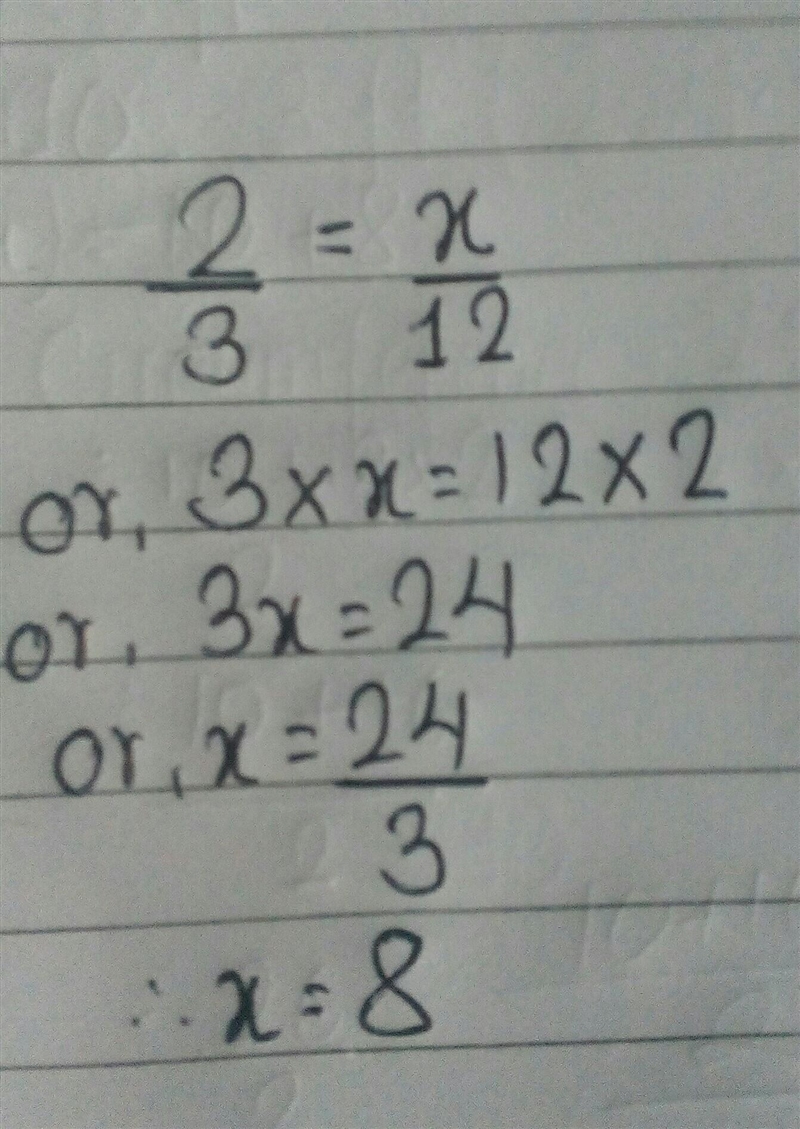 2/3 = x/12
or, 3×x=12×2
or, 3x=24
or, x=24/3
∴ x=8